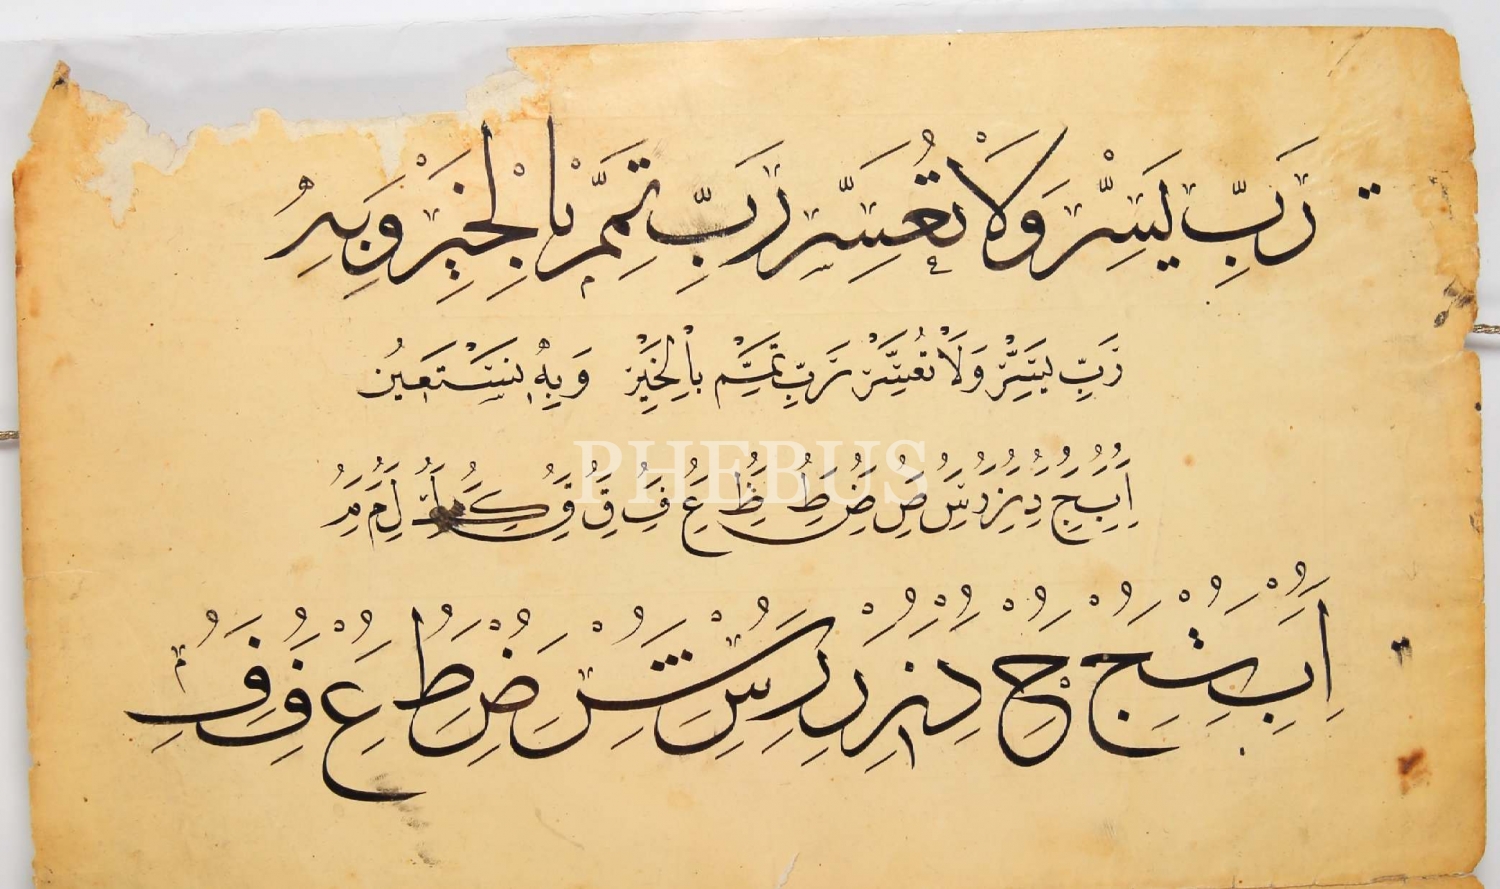 رَبِّ يَسِّرْ وَلَا تُعَسِّرْ رَبِّ تَمِّمْ بِالْخَيْرِ وَبِهِ
رَبِّ يَسِّرْ وَلَا تُعَسِّرْ رَبِّ تَمِّمْ بِالْخَيْرِ وَبِهِ نَسْتَعِينُ
PHEBUS
ا ب ج د ز ر س ص ض ط ظ ع ف ق ق ك ل م
ا ب ث ج ح د ز ر ر س ش ض ط ع ف ف